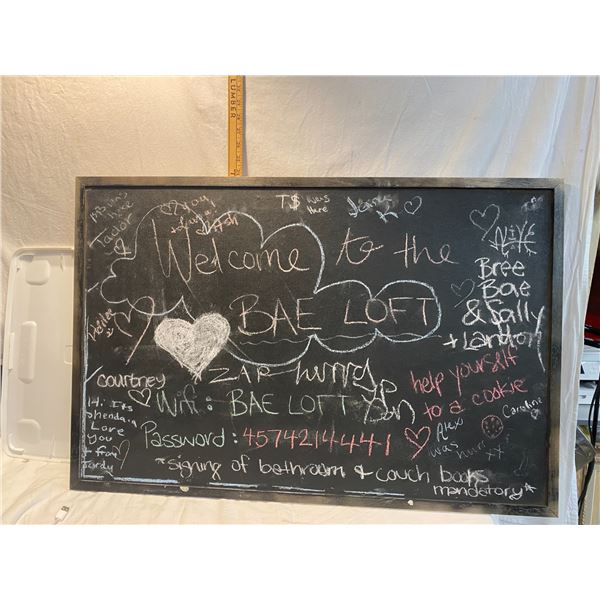 LUMBER
was here
Taylor
you,
Ash
T$ was Here
Welcome to the
BAE LOFT
Hello
Bree
Bae
& Sally
+ Landon
help yourself
to a cookie
Caroline
ZAP hurry up
courtney
Wifi: BAE LOFT
Password: 4574214441
Alex
was
xx
Hi: Its
Love
You
+ from
*signing of bathroom & couch books
mandatory*